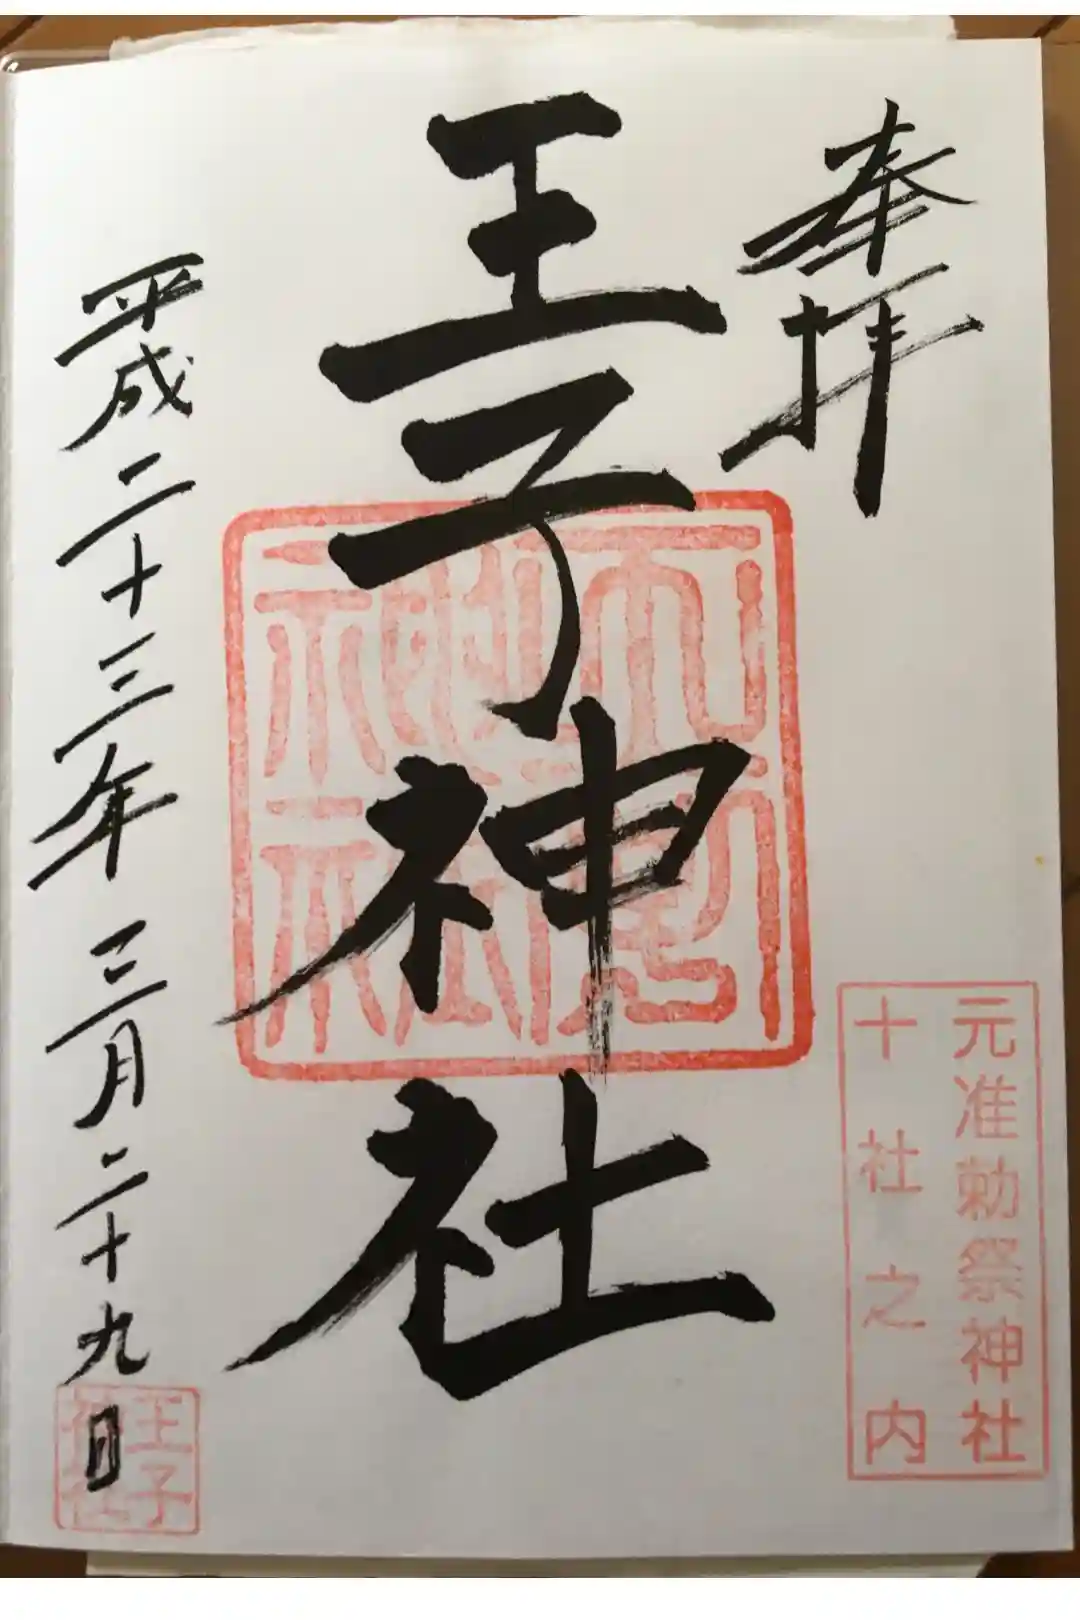 奉拝
元准勅祭神社
十社之内
王子神社
平成二十三年三月二十九日
王子
神社